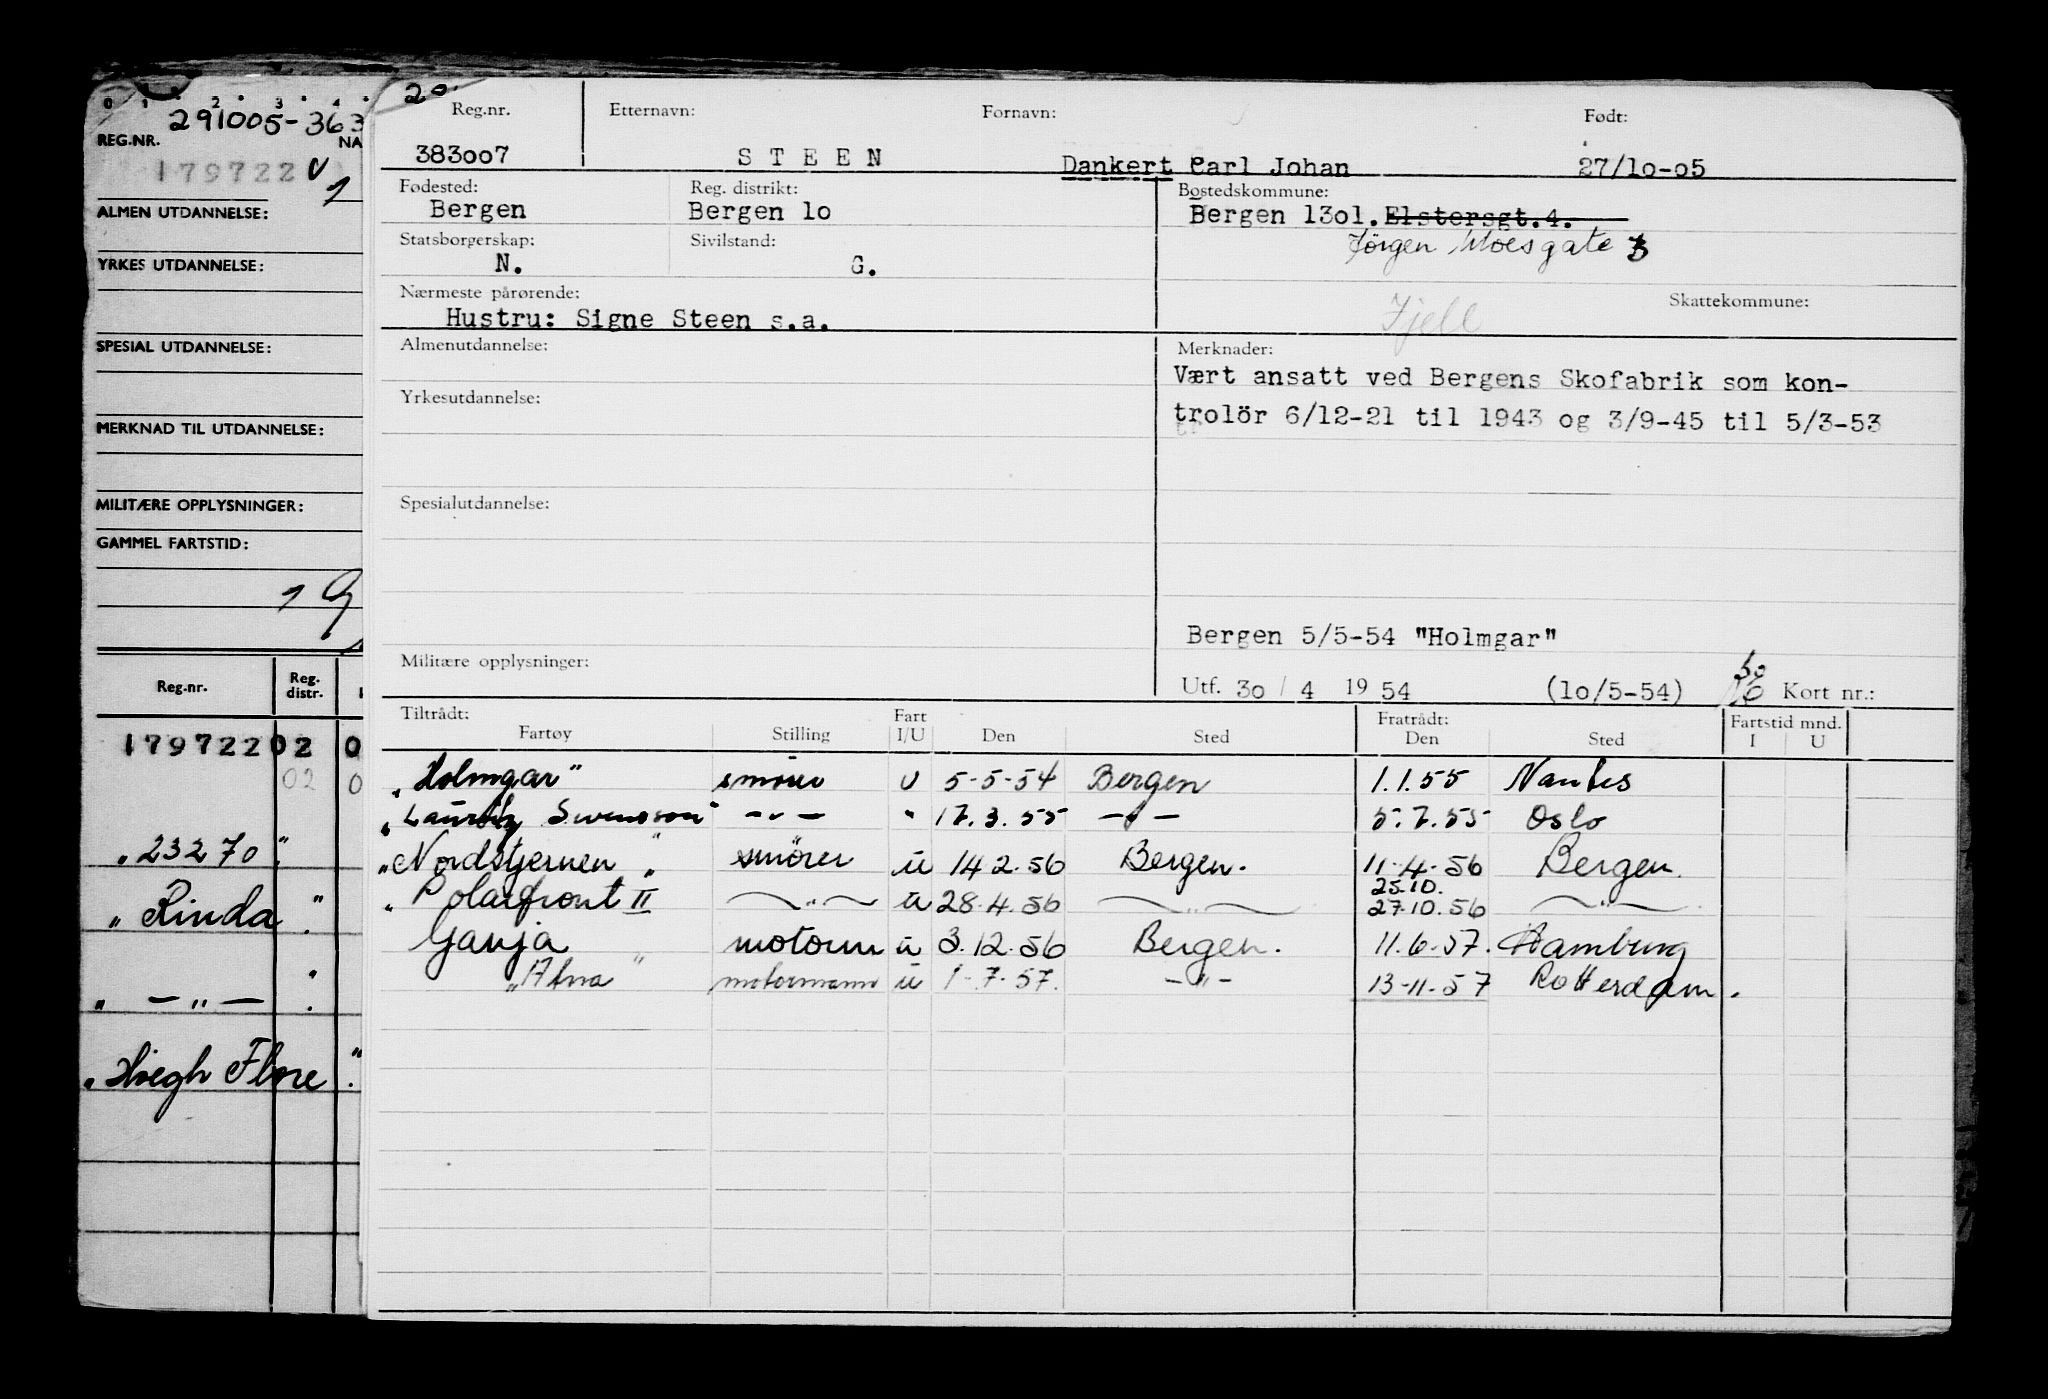 0 1 2 3 4
291005-363
REG.NR. NA
179722 v
1
ALMEN UTDANNELSE:
YRKES UTDANNELSE:
SPESIAL UTDANNELSE:
MERKNAD TIL UTDANNELSE:
MILITÆRE OPPLYSNINGER:
GAMMEL FARTSTID:
Reg.nr. Reg. distr.
179722 02 0
02 0
"23270"
"Rinda"
" — " —
"Høegh Flore"
20.
Reg.nr. Etternavn: Fornavn: Født:
383007 STEEN Dankert Carl Johan 27/10-05
Fødested: Reg. distrikt: Bostedskommune:
Bergen Bergen 10 Bergen 1301. Elstersgt.4.
Statsborgerskap: Sivilstand: Jörgen Moesgate
N. G.
Nærmeste pårørende: Fjell Skattekommune:
Hustru: Signe Steen s.a.
Almenutdannelse: Merknader:
Vært ansatt ved Bergens Skofabrik som kon-
Yrkesutdannelse: trolör 6/12-21 til 1943 og 3/9-45 til 5/3-53
Spesialutdannelse:
Bergen 5/5-54 "Holmgar"
Militære opplysninger:
Utf. 30 / 4 1954 (10/5-54) Kort nr.:
Tiltrådt: Fart Fratrådt: Fartstid mnd.
Fartøy Stilling I/U Den Sted Den Sted I U
"Holmgar" smører U 5-5-54 Bergen 1.1.55 Nantes
"Lauritz Svensson" — " — " 17.3.55 — " — 5.7.55 Oslo
"Nordstjernen" smörer u 14.2.56 Bergen. 11-4-56 Bergen.
25.10.
"Polarfront II — " — u 28.4.56 — " — 27.10.56 — " —
Ganja motorm u 3.12.56 Bergen. 11.6.57. Hamburg
"Atna" motormann u 1-7-57. — " — 13-11-57 Rotterdam.